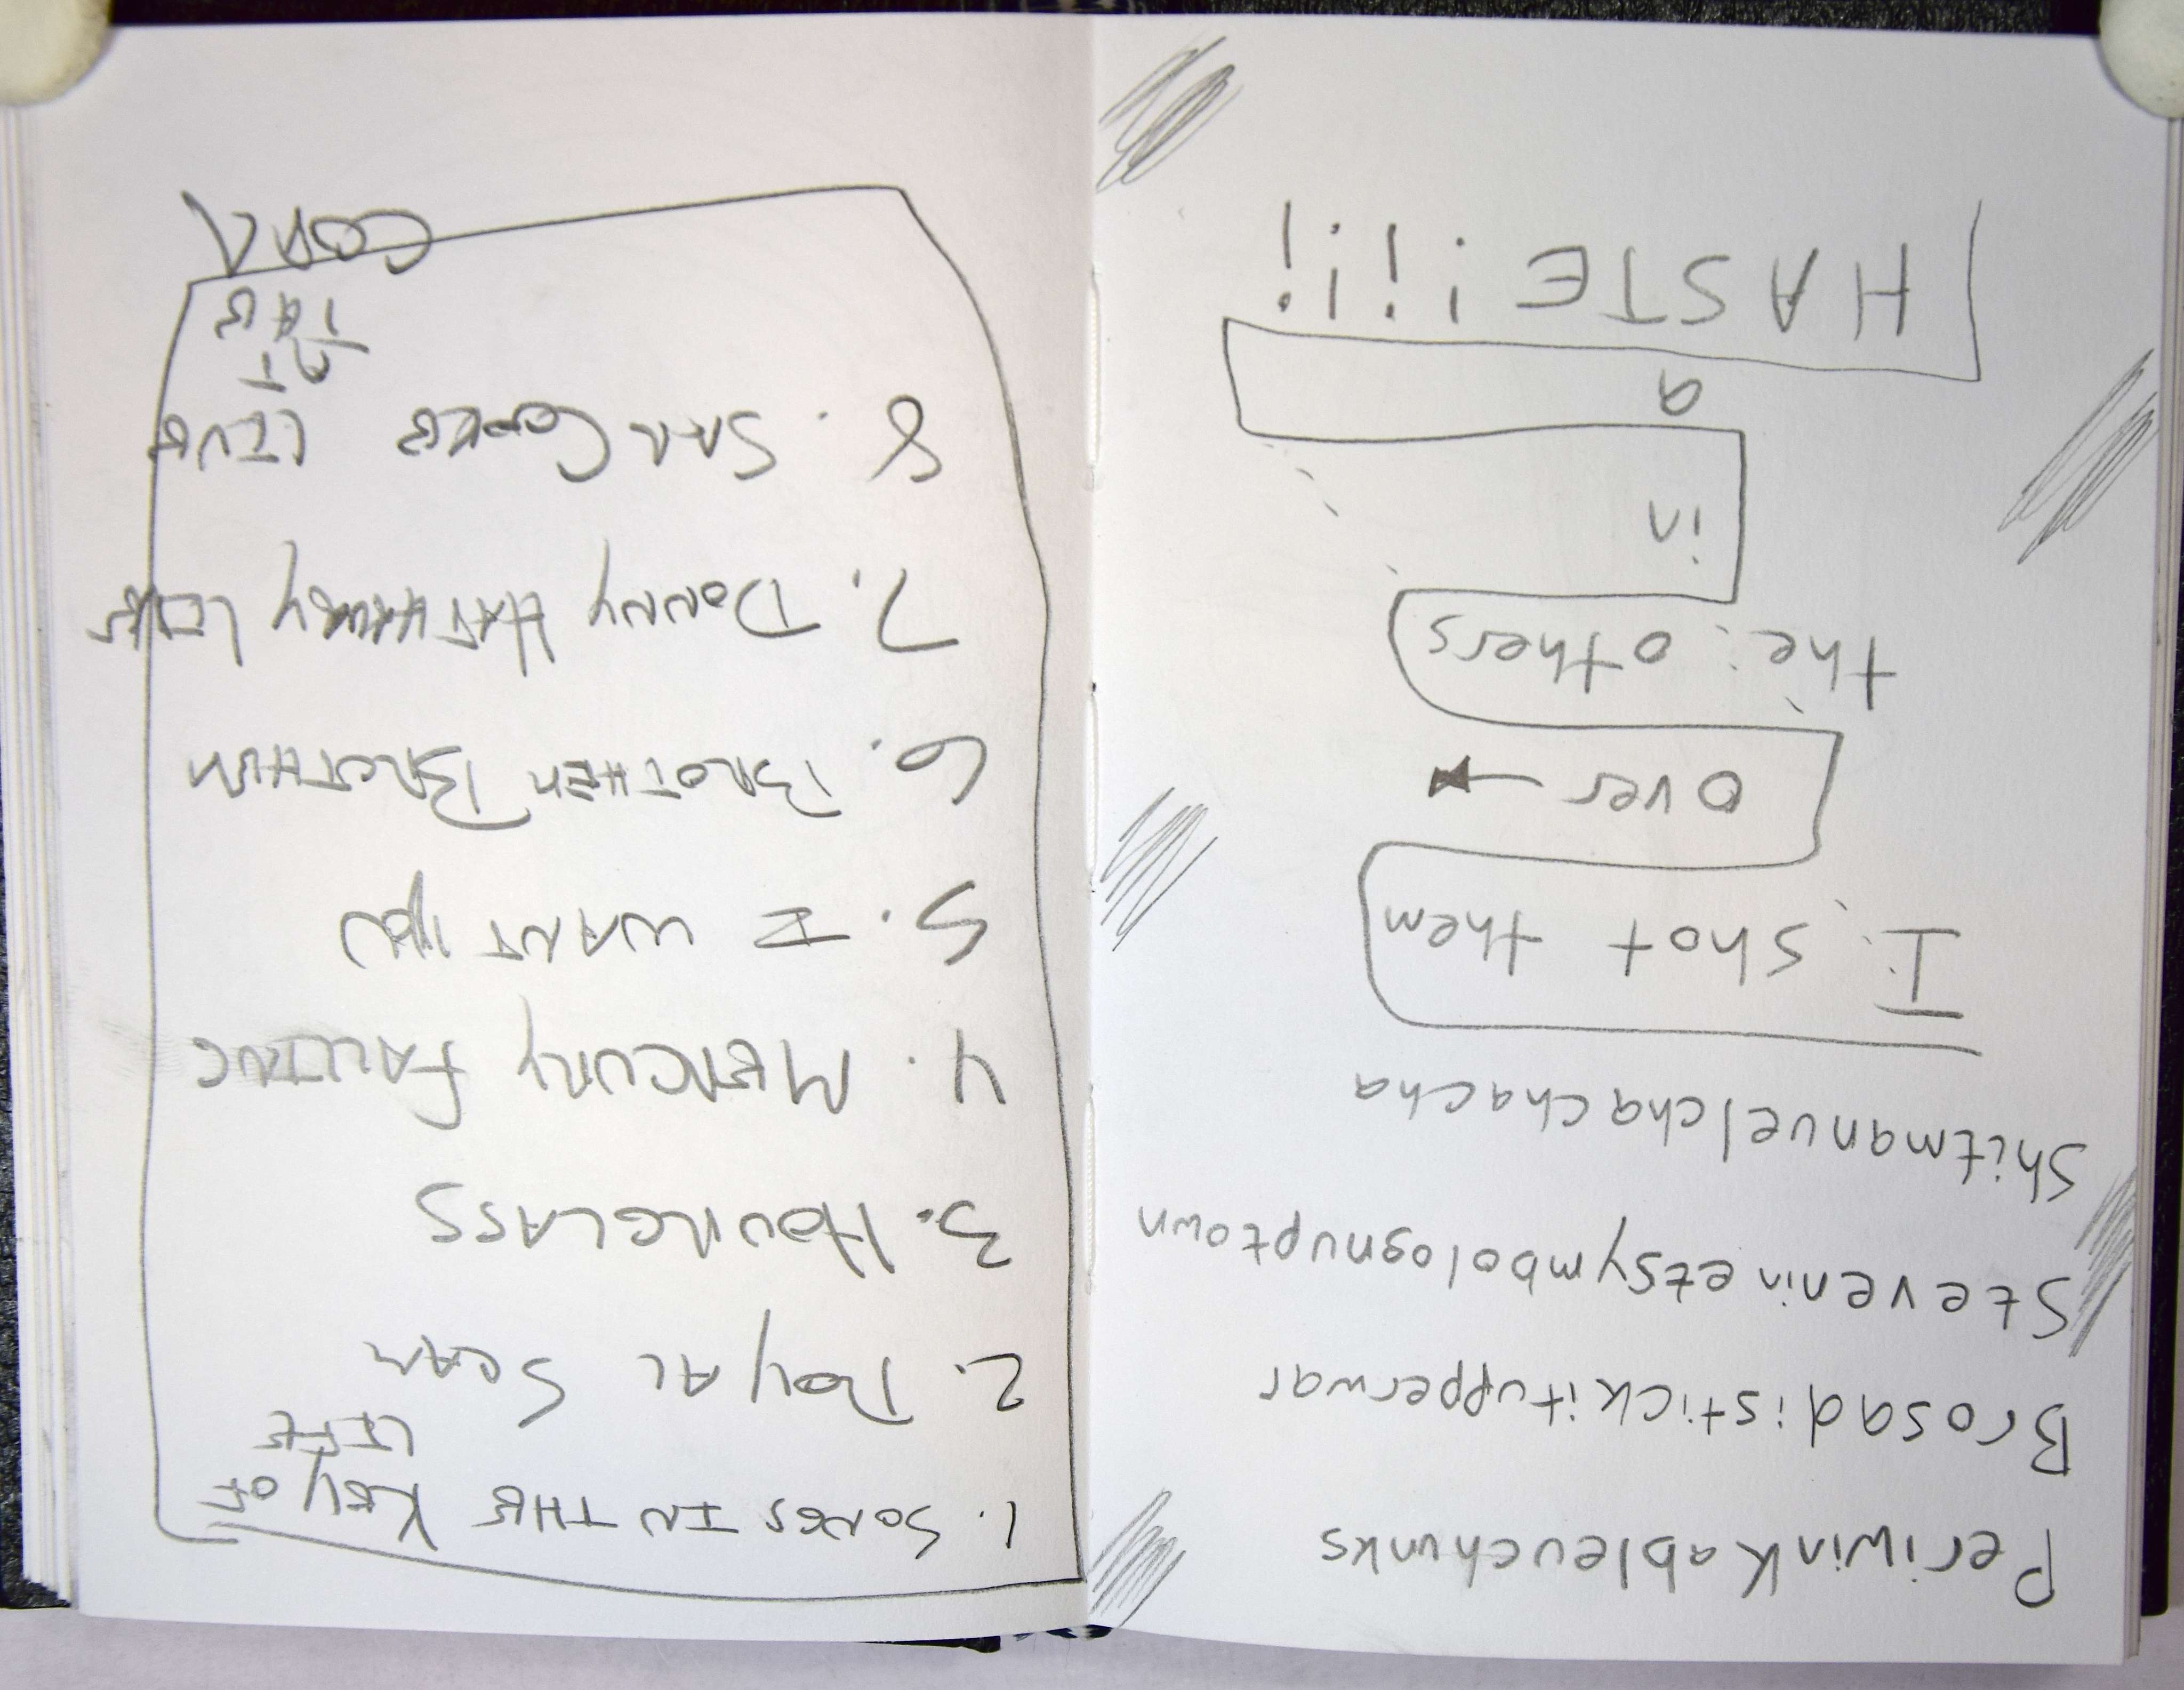 PeriwinKableuchunks
Brosadistickitupperwar
Steveninetsymbolognuptown
Shitmanuelchachacha
I shot them
over →
the: others
in
a
HASTE !!!!
1. SONGS IN THE KEY OF
LIFE
2. ROYAL SCAM
3. HOURGLASS
4. MERCURY FALLING
5. I WANT YOU
6. BROTHER BROTHER
7. DONNY HATHAWAY LIVE
8. SAM COOKE LIVE
AT
THE
COPA